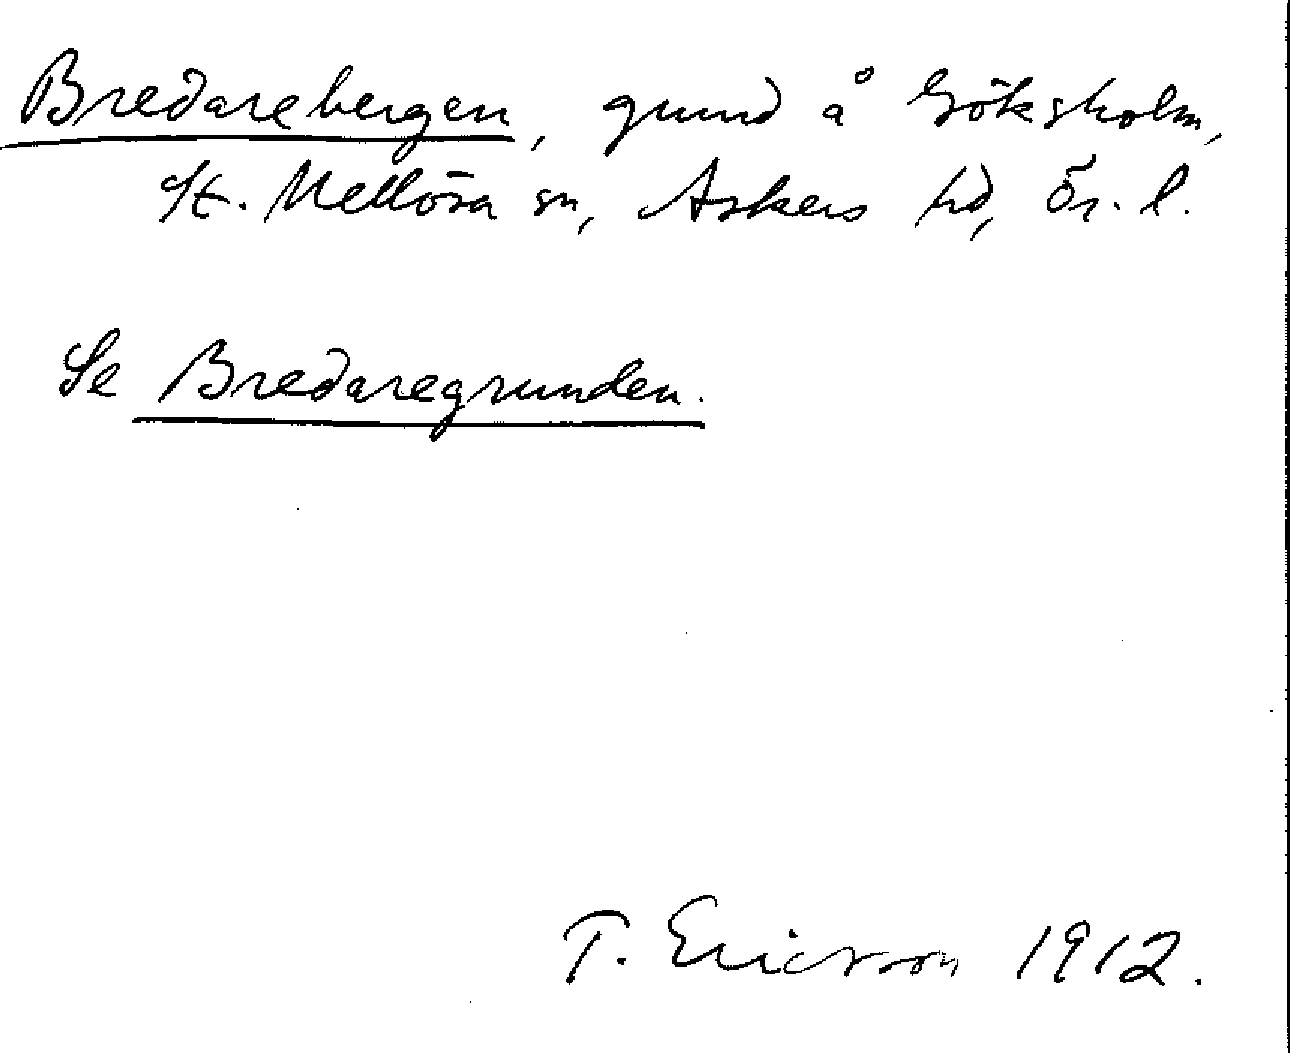 Bredarebergen, grund å Göksholm,
St. Mellösa sn, Askers hd, Ör. l.
Se Bredaregrunden.
T. Ericsson 1912.